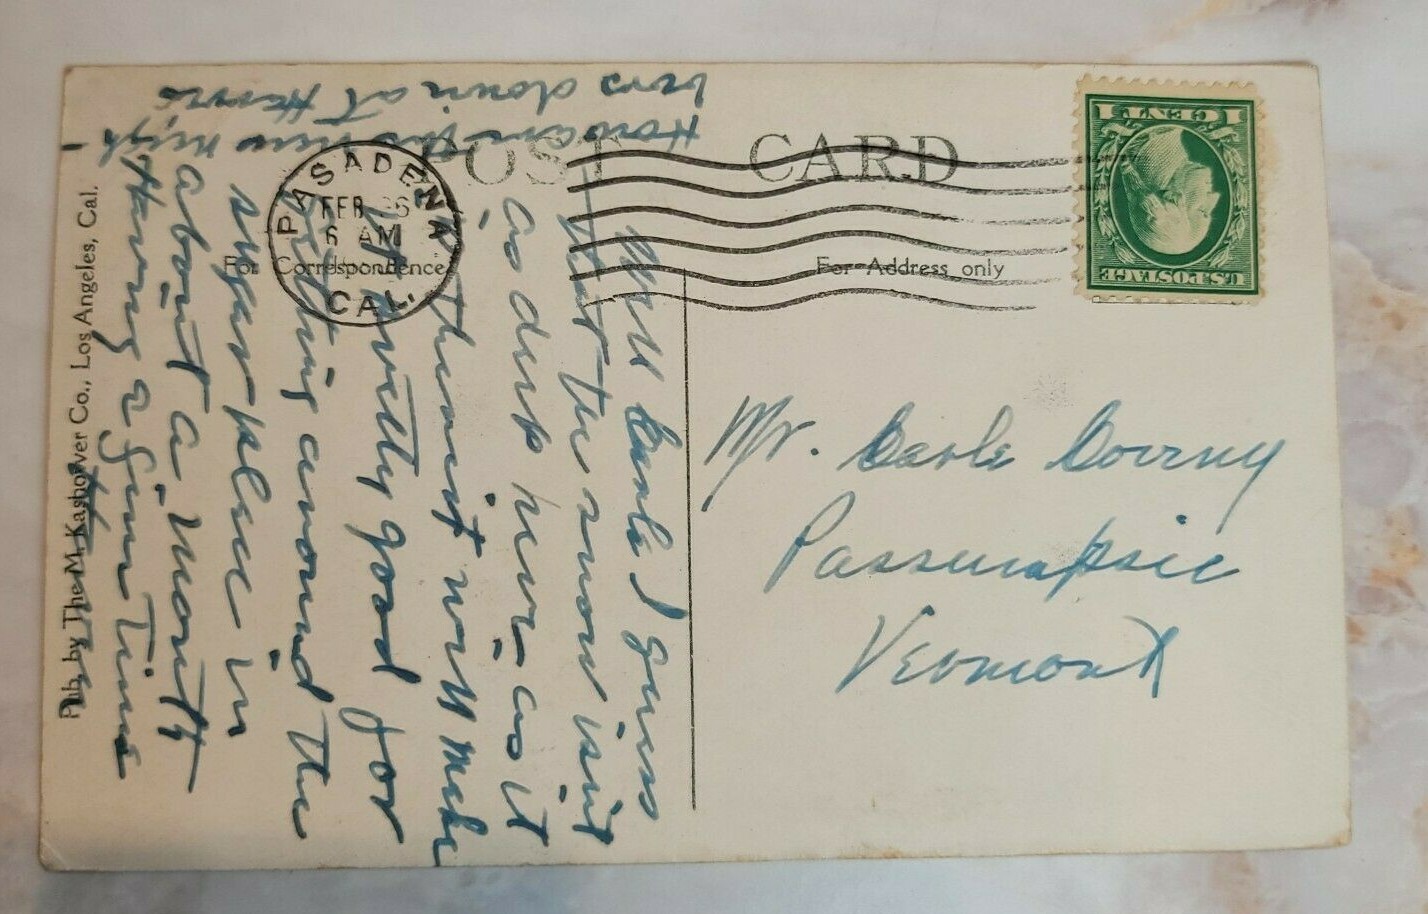 POST CARD
For Correspondence
For Address only
PASADENA
FEB 26
6 AM
CAL.
1 CENT 1
U.S. POSTAGE
Pub. by The M. Kashower Co., Los Angeles, Cal.
Mr. Earle
Passumpsic
Vermont
Well Earle I guess
that the snow isint
as deep here as it
is there it will make
it pretty good for
getting around the
sugar place in
about a month
Having a fine Time
down at